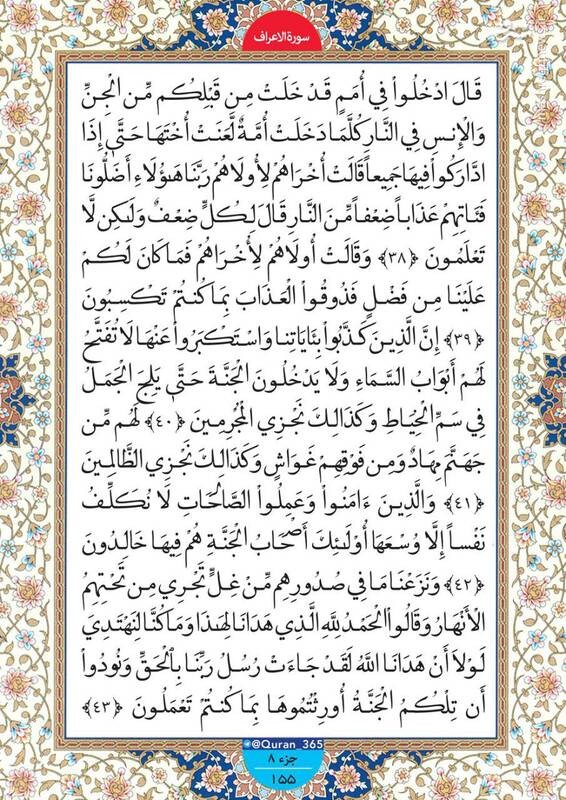 سورة الاعراف
قَالَ ادْخُلُواْ فِي أُمَمٍ قَدْ خَلَتْ مِن قَبْلِكُم مِّن الْجِنِّ
وَالإِنسِ فِي النَّارِ كُلَّمَا دَخَلَتْ أُمَّةٌ لَّعَنَتْ أُخْتَهَا حَتَّى إِذَا
ادَّارَكُواْ فِيهَا جَمِيعاً قَالَتْ أُخْرَاهُمْ لِأُولاَهُمْ رَبَّنَا هَـؤُلاءِ أَضَلُّونَا
فَئَاتِهِمْ عَذَاباً ضِعْفاً مِّنَ النَّارِ قَالَ لِكُلٍّ ضِعْفٌ وَلَـكِن لاَّ
تَعْلَمُونَ ﴿٣٨﴾ وَقَالَتْ أُولاَهُمْ لأُخْرَاهُمْ فَمَا كَانَ لَكُمْ
عَلَيْنَا مِن فَضْلٍ فَذُوقُواْ الْعَذَابَ بِمَا كُنتُمْ تَكْسِبُونَ
﴿٣٩﴾ إِنَّ الَّذِينَ كَذَّبُواْ بِئَايَاتِنا وَاسْتَكْبَرُواْ عَنْهَا لاَ تُفَتَّحُ
لَهُمْ أَبْوَابُ السَّمَاءِ وَلاَ يَدْخُلُونَ الْجَنَّةَ حَتَّى يَلِجَ الْجَمَلُ
فِي سَمِّ الْخِيَاطِ وَكَذَالِكَ نَجْزِي الْمُجْرِمِينَ ﴿٤٠﴾ لَهُم مِّن
جَهَنَّمَ مِهَادٌ وَمِن فَوْقِهِمْ غَوَاشٍ وَكَذَالِكَ نَجْزِي الظَّالِمِينَ
﴿٤١﴾ وَالَّذِينَ ءَامَنُواْ وَعَمِلُواْ الصَّالِحَاتِ لاَ نُكَلِّفُ
نَفْساً إِلاَّ وُسْعَهَا أُوْلَـئِكَ أَصْحَابُ الْجَنَّةِ هُمْ فِيهَا خَالِدُونَ
﴿٤٢﴾ وَنَزَعْنَا مَا فِي صُدُورِهِم مِّنْ غِلٍّ تَجْرِي مِن تَحْتِهِمُ
الأَنْهَارُ وَقَالُواْ الْحَمْدُ لِلّهِ الَّذِي هَدَانَا لِهَـذَا وَمَا كُنَّا لِنَهْتَدِيَ
لَوْلاَ أَنْ هَدَانَا اللّهُ لَقَدْ جَاءَتْ رُسُلُ رَبِّنَا بِالْحَقِّ وَنُودُواْ
أَن تِلْكُمُ الْجَنَّةُ أُورِثْتُمُوهَا بِمَا كُنتُمْ تَعْمَلُونَ ﴿٤٣﴾
@Quran_365
جزء ٨
١٥٥